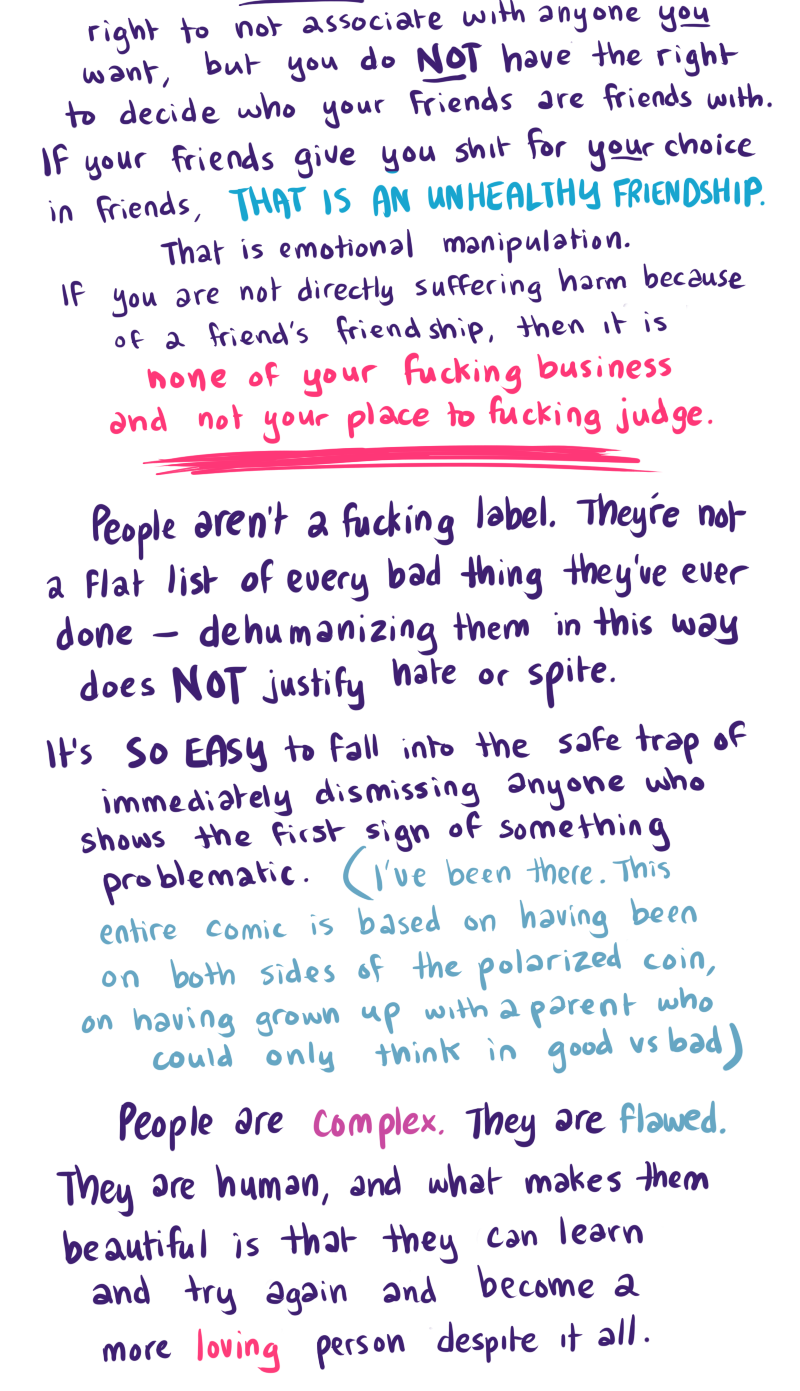 right to not associate with anyone you
want, but you do NOT have the right
to decide who your friends are friends with.
If your friends give you shit for your choice
in friends, THAT IS AN UNHEALTHY FRIENDSHIP.
That is emotional manipulation.
If you are not directly suffering harm because
of a friend's friendship, then it is
none of your fucking business
and not your place to fucking judge.
People aren't a fucking label. They're not
a flat list of every bad thing they've ever
done – dehumanizing them in this way
does NOT justify hate or spite.
It's SO EASY to fall into the safe trap of
immediately dismissing anyone who
shows the first sign of something
problematic. (I've been there. This
entire comic is based on having been
on both sides of the polarized coin,
on having grown up with a parent who
could only think in good vs bad)
People are complex. They are flawed.
They are human, and what makes them
beautiful is that they can learn
and try again and become a
more loving person despite it all.